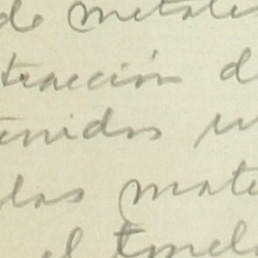 de metales
tracción d
enidos
las mate
el